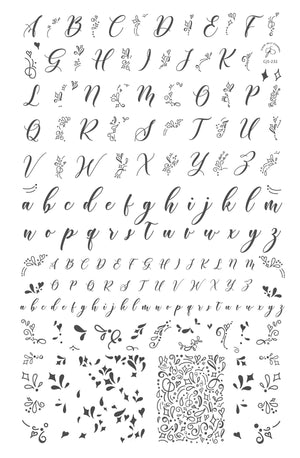 A B C D E F
CjS-232
G H I J K
L M N M O P
Q R S T U
V W X Y Z
a b c d e f g h i j k l m
n o p q r s t u v w x y z
A B C D E F G H I J K L M N
O P Q R S T U V W X Y Z
a b c d e f g h i j k l m n o p q r s t u v w x y z